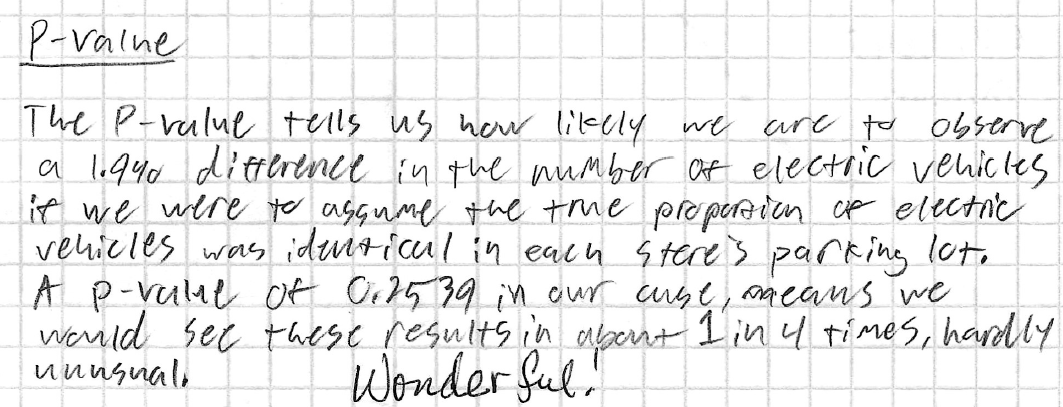 P-value
The P-value tells us how likely we are to observe
a 1.9% difference in the number of electric vehicles
if we were to assume the true proportion of electric
vehicles was identical in each store's parking lot.
A p-value of 0.2539 in our case, means we
would see these results in about 1 in 4 times, hardly
unusual. Wonderful!